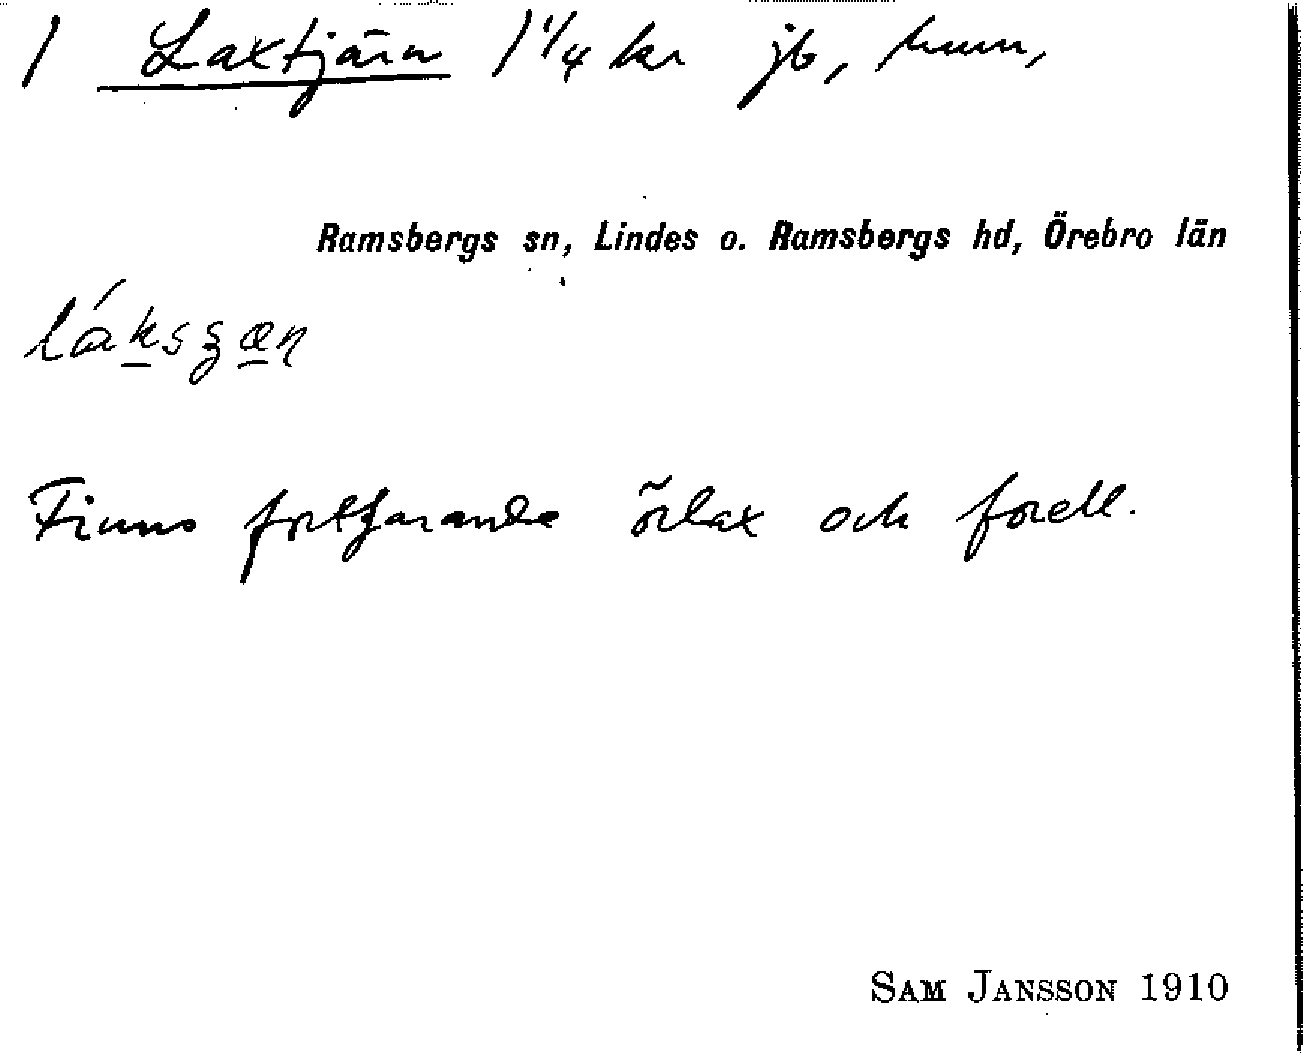 1 Laxtjärn 1 1/4 kr jb, hmm,
Ramsbergs sn, Lindes o. Ramsbergs hd, Örebro län
Finns fortfarande örlax och forell.
SAM JANSSON 1910